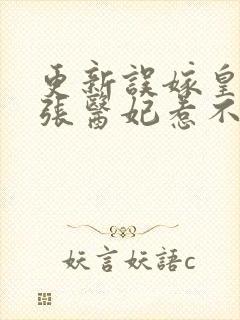 更新誤嫁皇
張醫妃惹不
妖言妖語c